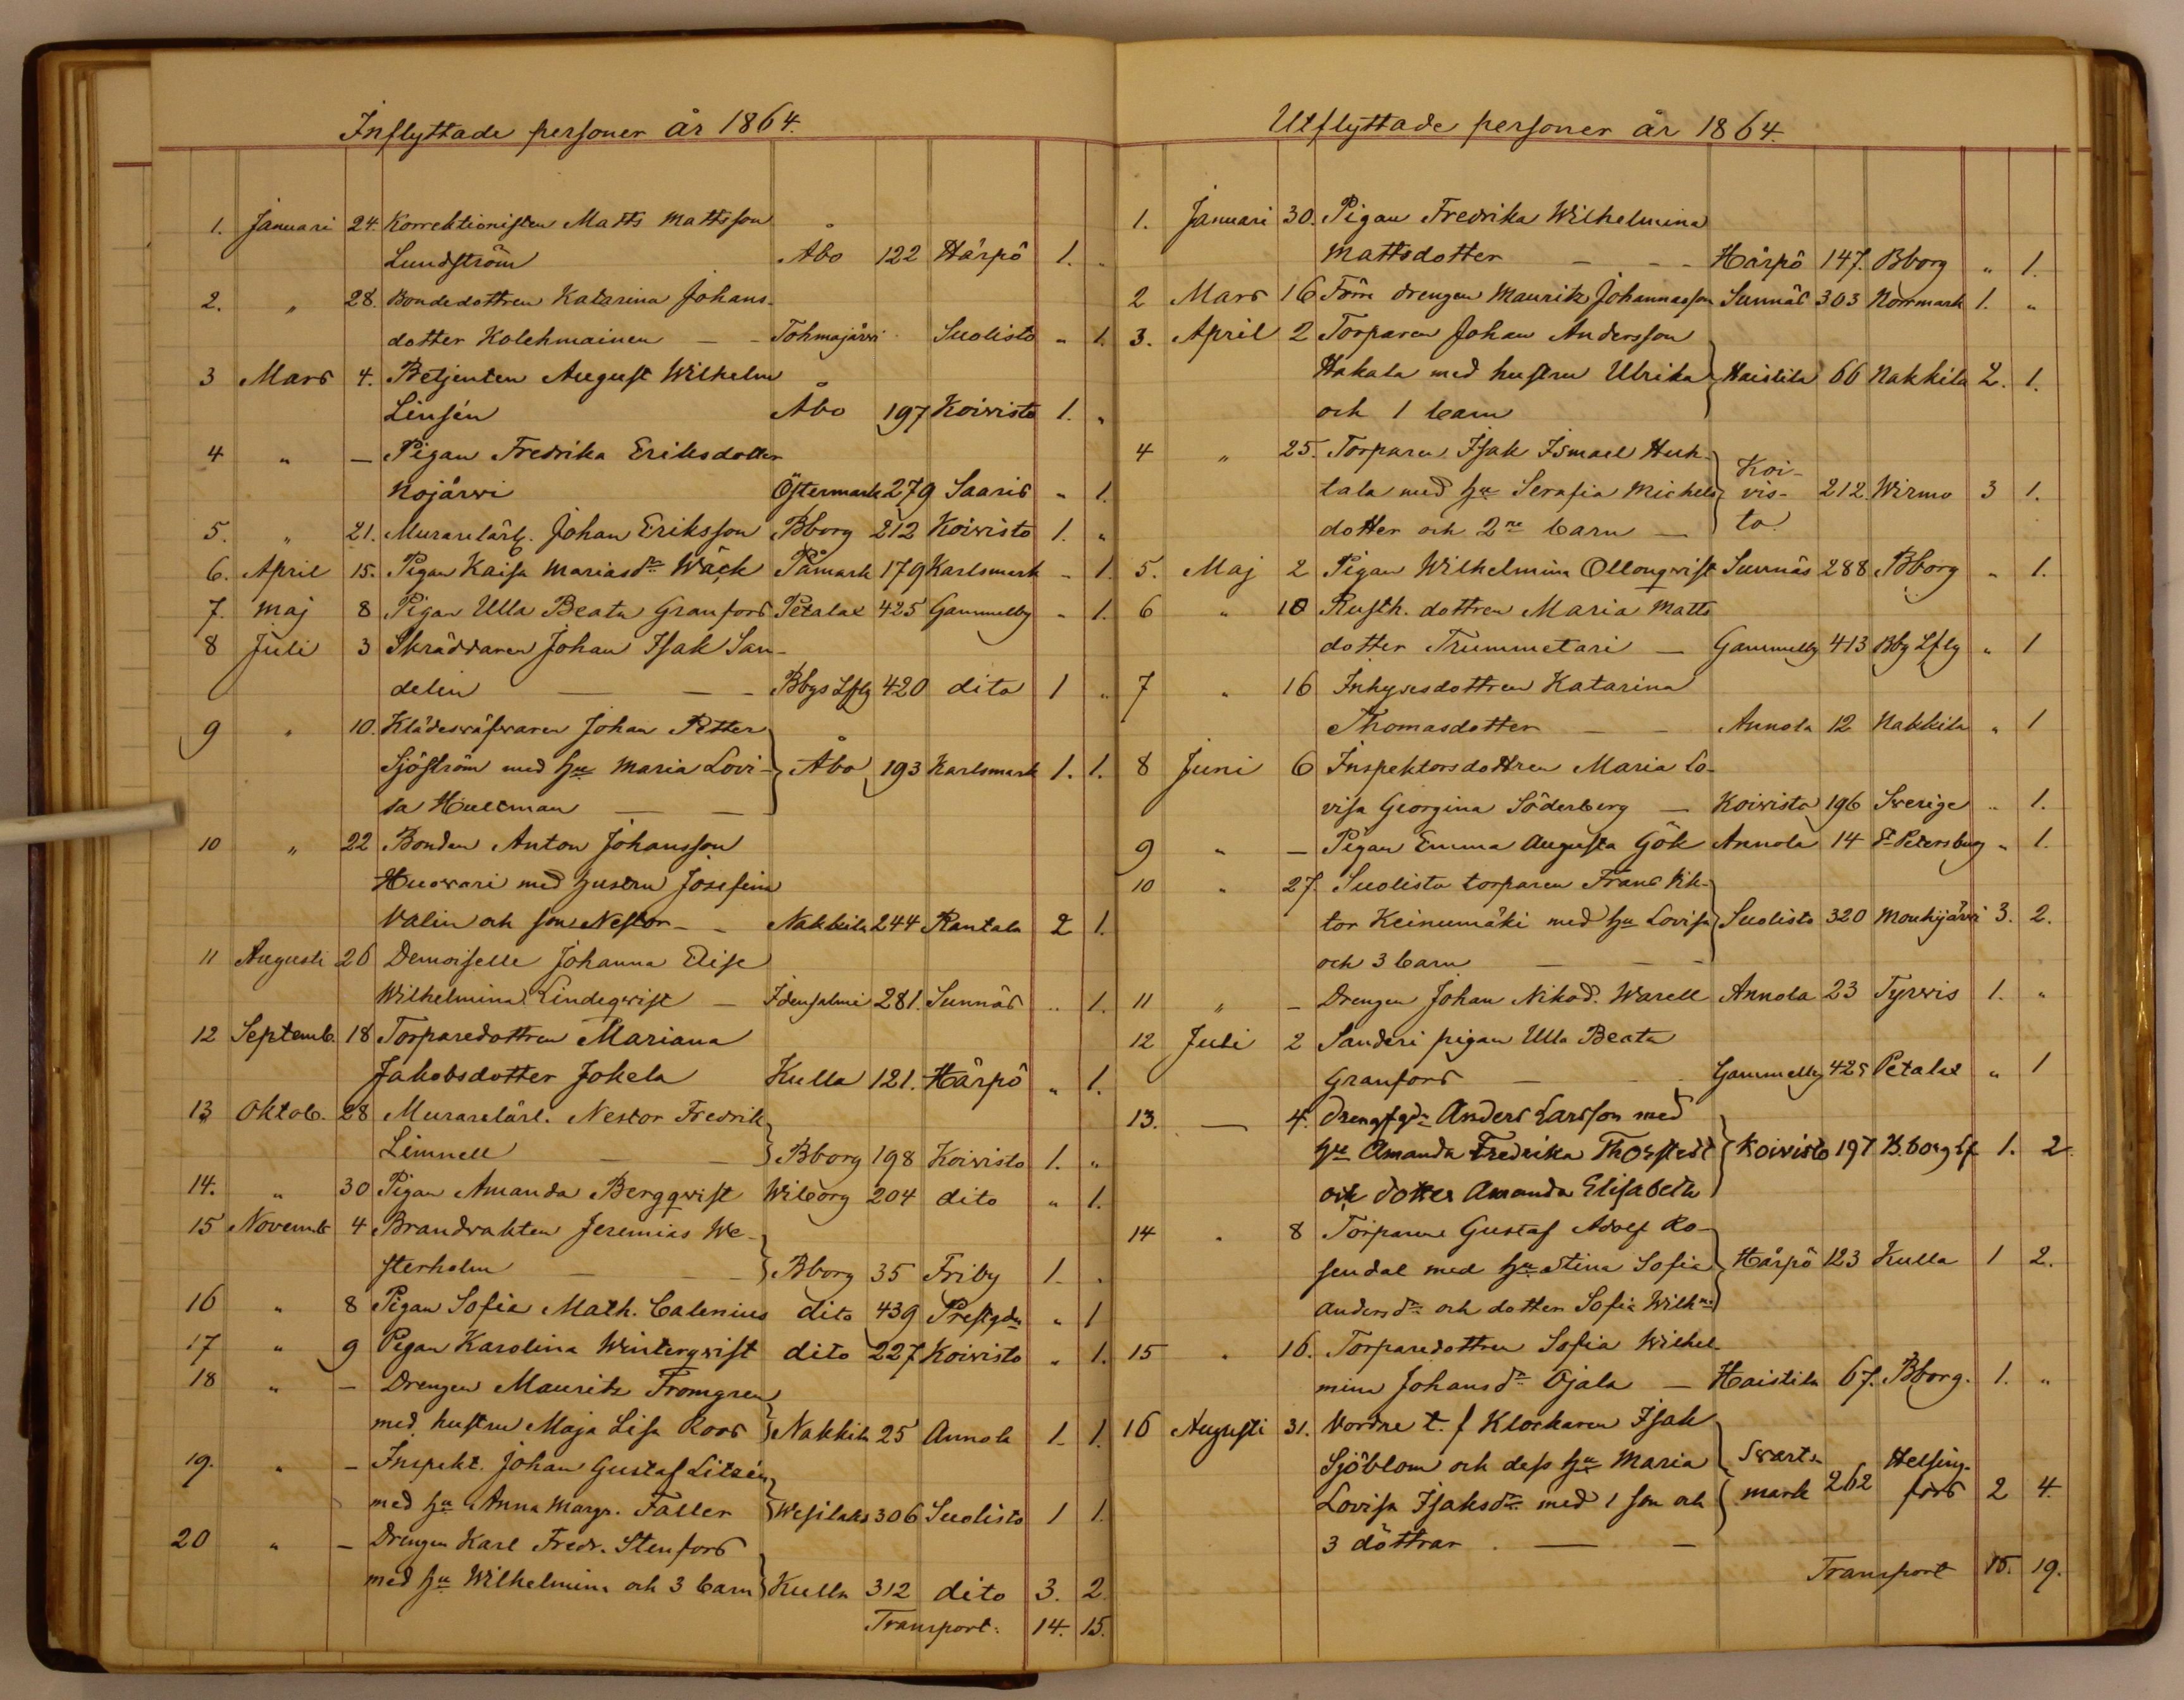 Inflyttade personer år 1864.
1. Januari 24. Korrektionisten Matts Mattsson
Lundström Åbo 122 Hårpö 1. "
2. " 28. Bondedottren Katarina Johans-
dotter Kolehmainen — - Tohmajärvi Suolisto " 1.
3 Mars 4. Betjenten August Wilhelm
Linsén Åbo 197 Koivisto 1. "
4 " — Pigan Fredrika Eriksdotter
Nojärwi Östermark 279 Saaris " 1.
5. " 21. Murarelärl. Johan Eriksson Bborg 212 Koivisto 1. "
6. April 15. Pigan Kaisa Mariasdr Wäck Påmark 179 Karlsmark " 1.
7. Maj 8 Pigan Ulla Beata Granfors Petalax 425 Gammelby " 1.
8 Juli 3 Skräddaren Johan Isak San-
delin — — Bbgs Lfg 420 dito 1 "
9 " 10. Klädesväfvaren Johan Petter
Sjöström med hu Maria Lovi- } Åbo 193 Karlsmark 1. 1.
sa Hultman — —
10 " 22 Bonden Anton Johansson
Huovari med hustru Josefina
Valin och son Nestor - - Nakkila 244 Rantala 2 1.
11 Augusti 26 Demoiselle Johanna Elise
Wilhelmina Lindeqvist — Idensalmi 281. Sunnäs " 1.
12 Septemb. 18 Torparedottren Mariana
Jakobsdotter Jokela Kulla 121. Hårpö " 1.
13 Oktob. 28 Murarelärl. Nestor Fredrik
Limnell — — } Bborg 198 Koivisto 1. "
14. " 30 Pigan Amanda Bergqvist Wiborg 204 dito " 1.
15 Novemb 4 Brandvakten Jeremias We-
sterholm — — } Bborg 35 Friby 1. "
16 " 8 Pigan Sofia Math. Calenius dito 439 Prestgdn " 1
17 " 9 Pigan Karolina Winterqvist dito 227 Koivisto " 1.
18 " — Drengen Mauritz Fromgren
med hustru Maja Lisa Roos } Nakkila 25 Annola 1. 1.
19. " — Inspekt. Johan Gustaf Litzén
med hu Anna Margr. Faller } Wesilaks 306 Suolisto 1 1.
20 " — Drengen Karl Fredr. Stenfors
med hu Wilhelmina och 3 barn } Kulla 312 dito 3. 2.
Transport: 14. 15.
Utflyttade personer år 1864.
1. Januari 30. Pigan Fredrika Wilhelmina
Mattsdotter — - - Hårpö 147. Bborg " 1.
2 Mars 16 Förre drengen Mauritz Johannasson Sunnäs 303 Norrmark 1. "
3. April 2 Torparen Johan Andersson
Hakala med hustru Ulrika } Haistila 66 Nakkila 2. 1.
och 1 barn
4 " 25. Torparen Isak Ismael Huh- } Koi-
tala med hu Serafia Michels } vis- 212. Wirmo 3 1.
dotter och 2ne barn — } to.
5. Maj 2 Pigan Wilhelmina Ollonqvist Sunnäs 288 Bborg " 1.
6 " 10 Rusth. dottren Maria Matts
dotter Trummetari — Gammelby 413 Bbg Lfg " 1
7 " 16 Inhysesdottren Katarina
Thomasdotter — — Annola 12 Nakkila " 1
8 Juni 6 Inspektorsdottren Maria Lo-
visa Georgina Söderberg — Koivisto 196 Sverige " 1.
9 " — Pigan Emma Augusta Gök Annola 14 St Petersburg " 1.
10 " 27 Suolisto torparen Frans Vik-
tor Keinumäki med hu Lovisa } Suolisto 320 Mouhijärvi 3. 2.
och 3 barn — — -
11 " — Drengen Johan Nikod. Warell Annola 23 Tyrvis 1. "
12 Juli 2 Sanderi pigan Ulla Beata
Granfors — - Gammelby 425 Petalax " 1
13. — 4. Anders Larsson med
hu Amanda Fredrika Thorstedt } Koivisto 197 B.borg Lf 1. 2.
och dotter Amanda Elisabeth
14 " 8 Torparen Gustaf Adolf Ro-
sendal med hu Stina Sofia } Hårpö 123 Kulla 1 2.
Andersdr och dotter Sofia Wilhna
15 " 16. Torparedottren Sofia Wilhel-
mina Johansdr Ojala — Haistila 67. Bborg. 1. "
16 Augusti 31. Vordne t. f Klockaren Isak
Sjöblom och dess hu Maria } Svarts- Helsing-
Lovisa Isaksdr med 1 son och } mark 262 fors 2 4.
3 döttrar . — —
Transport 15. 19.